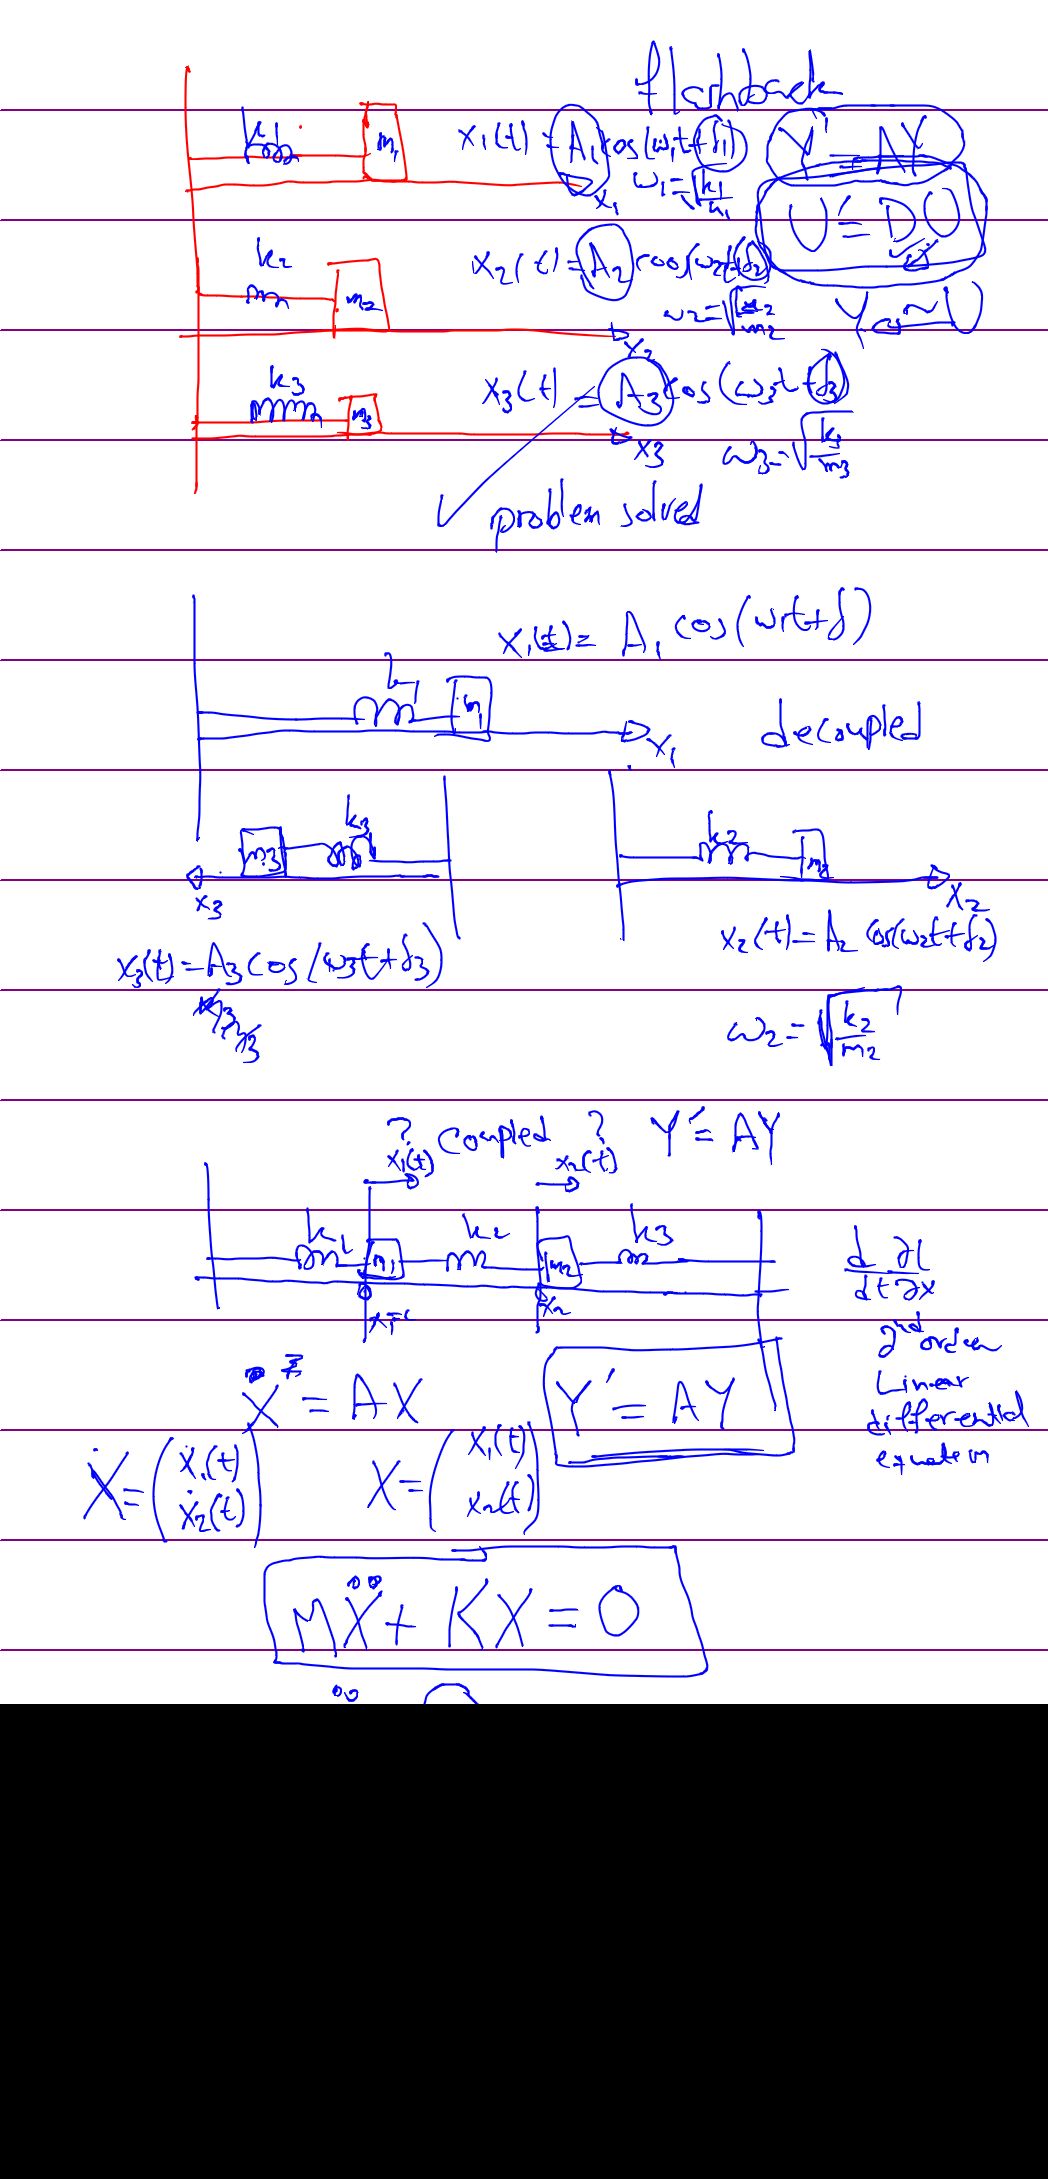 flashback
k₁ m₁ x₁(t) = A₁ cos(ω₁t+δ₁) Y' = AY
x₁ ω₁ = √(k₁/m₁) U' = DU
k₂ m₂ x₂(t) = A₂ cos(ω₂t+δ₂)
x₂ ω₂ = √(k₂/m₂) Y ~ U
k₃ m₃ x₃(t) = A₃ cos(ω₃t+δ₃)
x₃ ω₃ = √(k₃/m₃)
✓ problem solved
x₁(t) = A₁ cos(ω₁t+δ)
k₁ m₁ x₁ decoupled
m₃ k₃ k₂ m₂
x₃ x₂
x₃(t) = A₃ cos(ω₃t+δ₃) x₂(t) = A₂ cos(ω₂t+δ₂)
ω₂ = √(k₂/m₂)
? coupled ? Y' = AY
x₁(t) x₂(t)
k₁ m₁ k₂ m₂ k₃
x₂ d/dt ∂L/∂ẋ
2nd order
Linear
differential
equation
Ẋ = AX Y' = AY
Ẋ = (ẋ₁(t) ẋ₂(t)) X = (x₁(t) x₂(t))
MẌ + KX = 0